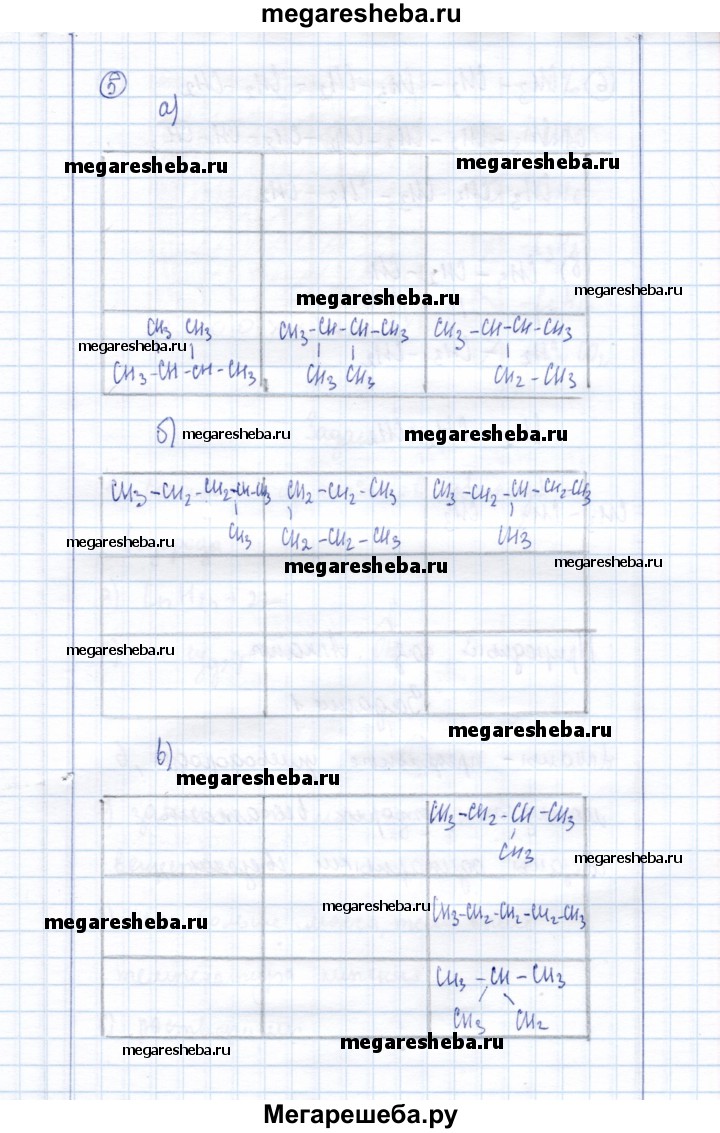 megaresheba.ru
5
а)
megaresheba.ru
megaresheba.ru
megaresheba.ru
megaresheba.ru
CH3 CH3
CH3-CH-CH-CH3
CH3-CH-CH-CH3
megaresheba.ru
CH3-CH-CH-CH3
CH3 CH3
CH2-CH3
б)
megaresheba.ru
megaresheba.ru
CH3-CH2-CH2-CH-CH3
CH2-CH2-CH3
CH3-CH2-CH-CH2-CH3
CH3
CH2-CH2-CH3
CH3
megaresheba.ru
megaresheba.ru
megaresheba.ru
megaresheba.ru
megaresheba.ru
в)
megaresheba.ru
CH3-CH2-CH-CH3
CH3
megaresheba.ru
megaresheba.ru
CH3-CH2-CH2-CH2-CH3
megaresheba.ru
CH3-CH-CH3
CH3 CH2
megaresheba.ru
megaresheba.ru
Мегарешеба.ру